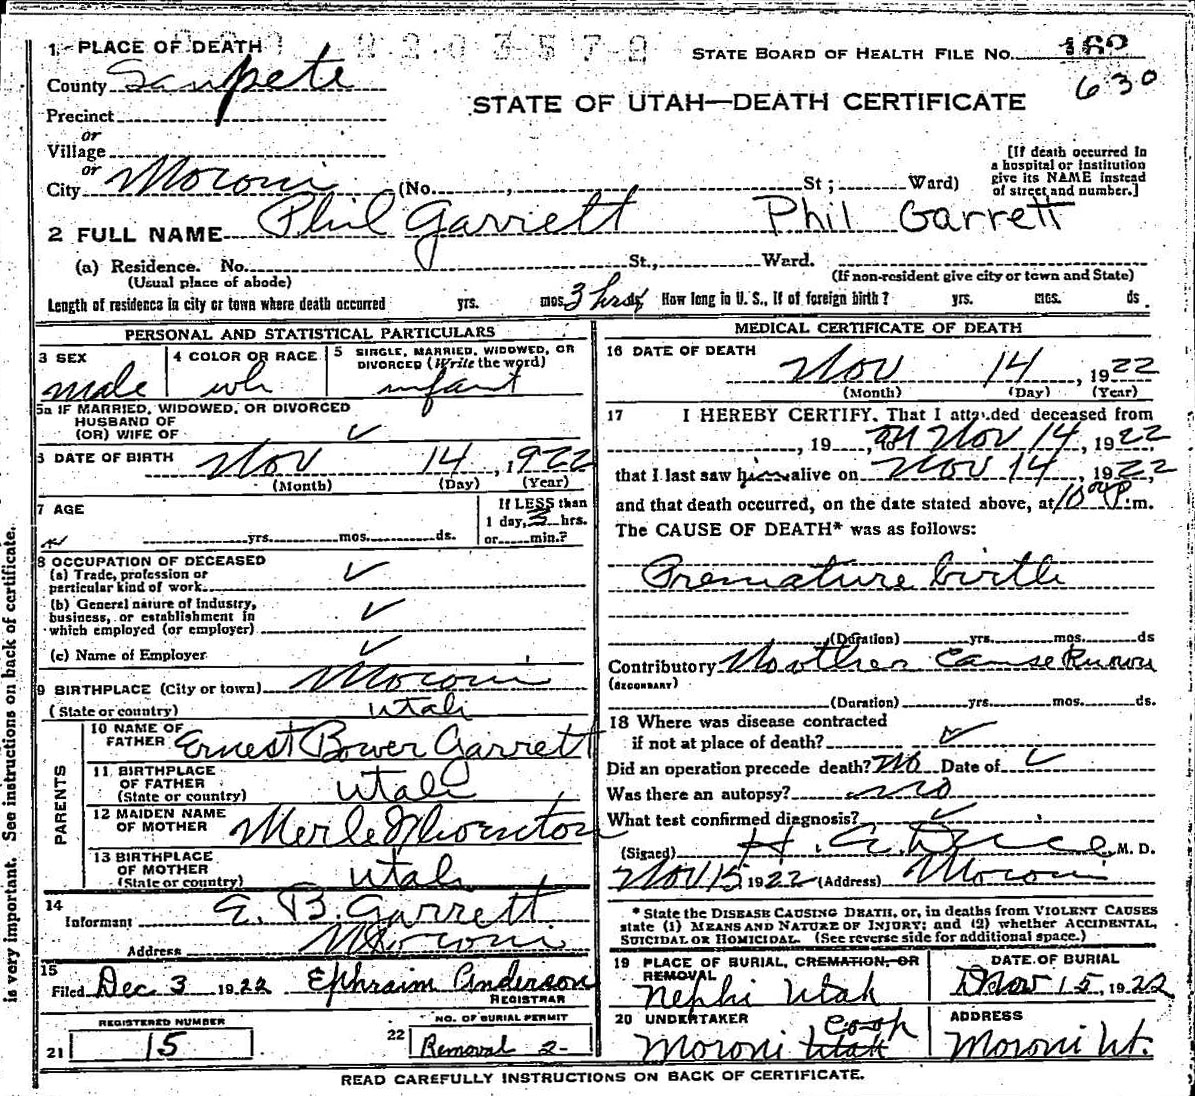 1 PLACE OF DEATH
STATE BOARD OF HEALTH FILE NO. 160
630
County Sanpete
STATE OF UTAH—DEATH CERTIFICATE
Precinct
or
Village
or
City Moroni (No. , St; Ward)
[If death occurred in
a hospital or institution
give its NAME instead
of street and number.]
2 FULL NAME Phil Garrett Phil Garrett
(a) Residence. No. St., Ward.
(Usual place of abode) (If non-resident give city or town and State)
Length of residence in city or town where death occurred yrs. mos. 3 hrs How long in U. S., if of foreign birth? yrs. mos. ds.
PERSONAL AND STATISTICAL PARTICULARS
3 SEX
male
4 COLOR OR RACE
wh
5 SINGLE, MARRIED, WIDOWED, OR
DIVORCED (Write the word)
infant
5a IF MARRIED, WIDOWED, OR DIVORCED
HUSBAND OF
(OR) WIFE OF ✓
6 DATE OF BIRTH Nov 14, 1922
(Month) (Day) (Year)
7 AGE
yrs. mos. ds.
If LESS than
1 day, 3 hrs.
or min.?
8 OCCUPATION OF DECEASED
(a) Trade, profession or
particular kind of work ✓
(b) General nature of industry,
business, or establishment in
which employed (or employer) ✓
(c) Name of Employer ✓
9 BIRTHPLACE (City or town) Moroni
(State or country) Utah
PARENTS
10 NAME OF
FATHER Ernest Bower Garrett
11 BIRTHPLACE
OF FATHER
(State or country) Utah
12 MAIDEN NAME
OF MOTHER Merle Thornton
13 BIRTHPLACE
OF MOTHER
(State or country) Utah
14
Informant E. B. Garrett
Address Moroni
15
Filed Dec 3 1922 Ephraim Anderson
REGISTRAR
REGISTERED NUMBER
21 15
NO. OF BURIAL PERMIT
22 Removal 2-
MEDICAL CERTIFICATE OF DEATH
16 DATE OF DEATH
Nov 14, 1922
(Month) (Day) (Year)
17 I HEREBY CERTIFY, That I attended deceased from
, 19 , to on Nov 14, 1922
that I last saw him alive on Nov 14, 1922,
and that death occurred, on the date stated above, at 10 00 P.m.
The CAUSE OF DEATH* was as follows:
Premature birth
(Duration) yrs. mos. ds
Contributory No other cause known
(SECONDARY)
(Duration) yrs. mos. ds.
18 Where was disease contracted
if not at place of death? ✓
Did an operation precede death? No Date of ✓
Was there an autopsy? no
What test confirmed diagnosis? ✓
(Signed) H. A. Dice M. D.
Nov 15 1922 (Address) Moroni
* State the DISEASE CAUSING DEATH, or, in deaths from VIOLENT CAUSES
state (1) MEANS AND NATURE OF INJURY; and (2) whether ACCIDENTAL,
SUICIDAL OR HOMICIDAL. (See reverse side for additional space.)
19 PLACE OF BURIAL, CREMATION, OR
REMOVAL
Nephi Utah
DATE OF BURIAL
Nov 15, 1922
20 UNDERTAKER
Co-op
Moroni Utah
ADDRESS
Moroni Ut.
READ CAREFULLY INSTRUCTIONS ON BACK OF CERTIFICATE.
is very important. See instructions on back of certificate.